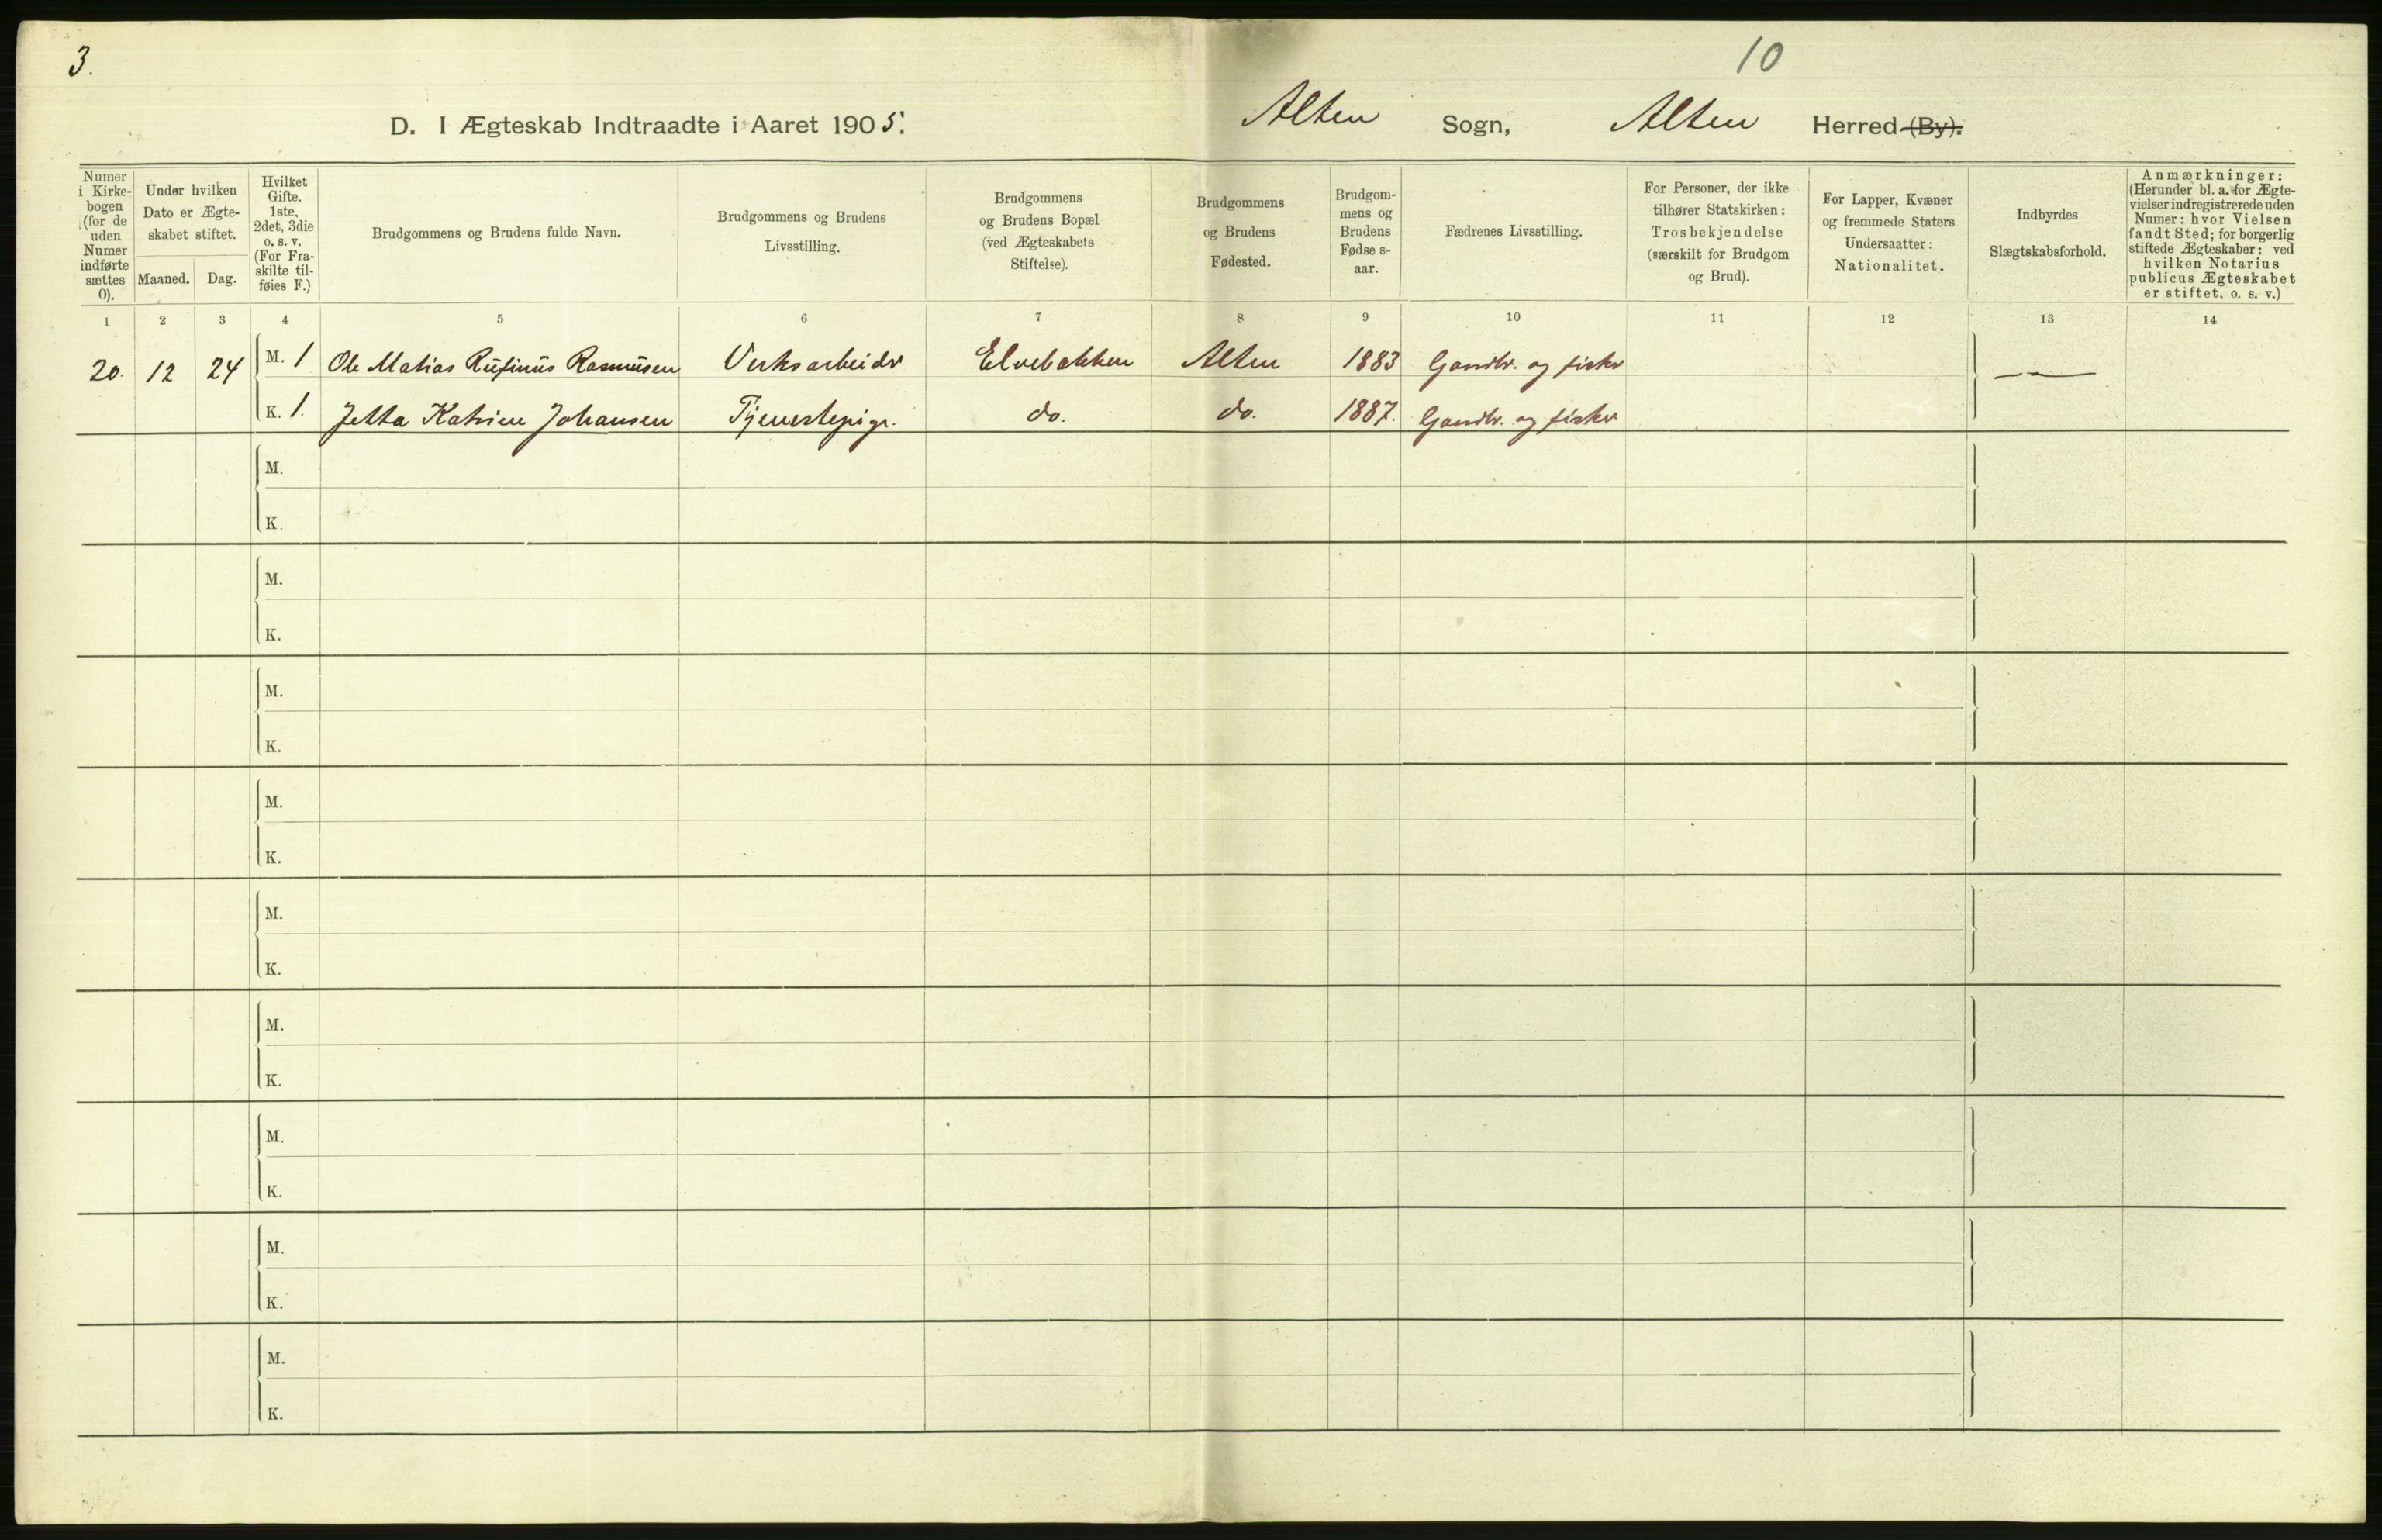 3.
10
D. I Ægteskab Indtraadte i Aaret 1905.
Alten Sogn, Alten Herred (By).
Numer i Kirke-bogen (for de uden Numer indførte sættes 0).
Under hvilken Dato er Ægte-skabet stiftet.
Maaned. Dag.
Hvilket Gifte. 1ste, 2det, 3die o. s. v. (For Fra-skilte til-føies F.)
Brudgommens og Brudens fulde Navn.
Brudgommens og Brudens Livsstilling.
Brudgommens og Brudens Bopæl (ved Ægteskabets Stiftelse).
Brudgommens og Brudens Fødested.
Brudgom-mens og Brudens Fødse s-aar.
Fædrenes Livsstilling.
For Personer, der ikke tilhører Statskirken: Trosbekjendelse (særskilt for Brudgom og Brud).
For Lapper, Kvæner og fremmede Staters Undersaatter: Nationalitet.
Indbyrdes Slægtskabsforhold.
Anmærkninger: (Herunder bl. a. for Ægte-vielser indregistrerede uden Numer: hvor Vielsen fandt Sted; for borgerlig stiftede Ægteskaber: ved hvilken Notarius publicus Ægteskabet er stiftet. o. s. v.)
1 2 3 4 5 6 7 8 9 10 11 12 13 14
20. 12 24 M. 1 Ole Matias Rufinus Rasmusen Verksarbeider Elvebakken Alten 1883 Gaardbr. og fisker —
K. 1. Jetta Katrine Johansen Tjenestepige. do. do. 1887. Gaardbr. og fisker
M.
K.
M.
K.
M.
K.
M.
K.
M.
K.
M.
K.
M.
K.
M.
K.
M.
K.